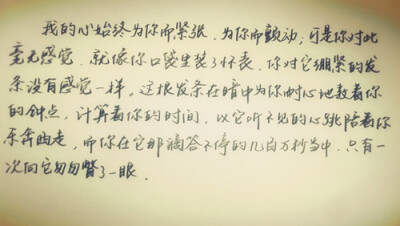 我的心始终为你而紧张，为你而颤动；可是你对此
毫无感觉，就像你口袋里装了怀表，你对它绷紧的发
条没有感觉一样。这根发条在暗中为你耐心地数着你
的钟点，计算着你的时间，以它听不见的心跳陪着你
东奔西走，而你在它那滴答不停的几百万秒当中，只有一
次向它匆匆瞥了一眼．